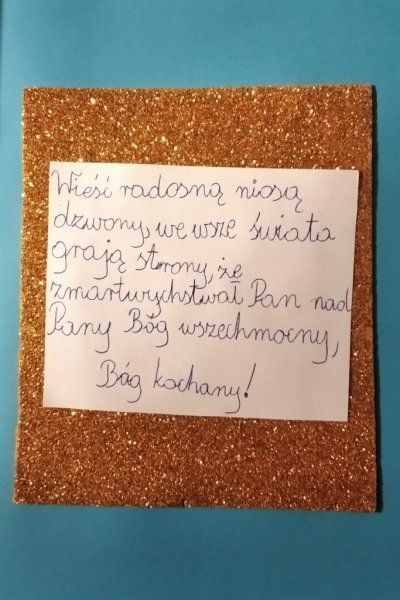 Wieść radosną niosą
dzwony, we wsze świata
grają strony, że
zmartwychstwał Pan nad
Pany Bóg wszechmocny,
Bóg kochany!